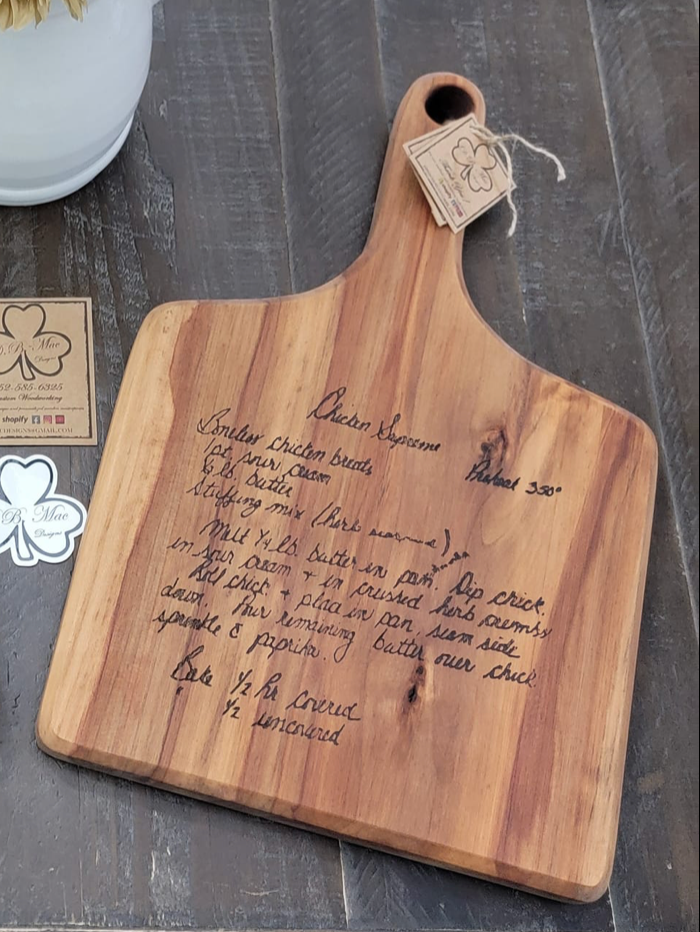 Chicken Supreme
Boneless chicken breats
Preheat 350°
1 pt sour cream
butter
Stuffing mix (herb seasoned)
Melt 1/4 lb. butter in pan. Dip chick.
in sour cream + in crushed herb crumbs
Roll chick. + place in pan, seam side
down. Pour remaining butter over chick.
sprinkle c̄ paprika.
Bake 1/2 hr covered
1/2 uncovered
B. Mac
Designs
52-585-6325
Custom Woodworking
shopify
B. Mac
Designs
Mac